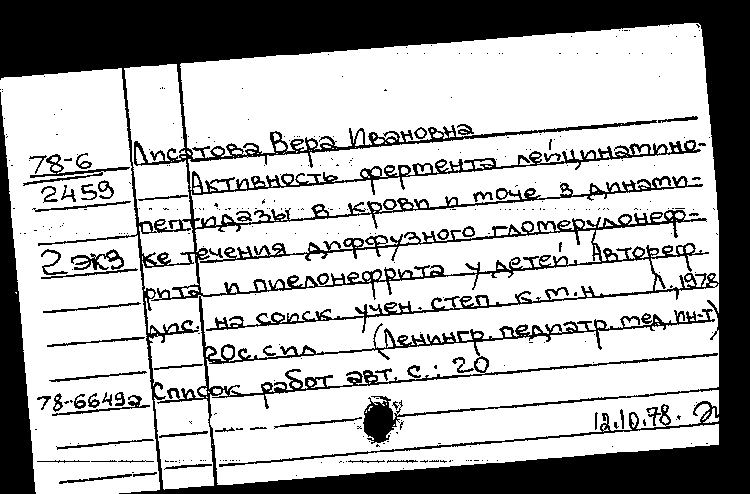 78-6 Лисатова, Вера Ивановна
2459 Активность фермента лейцинамино-
пептидазы в крови и моче в динами-
2 экз ке течения диффузного гломерулонеф-
рита и пиелонефрита у детей. Автореф.
дис. на соиск. учен. степ. к.м.н. Л., 1978
20с. с ил. (Ленингр. педиатр. мед. ин-т)
78-6649а Список работ авт. с.: 20
12.10.78.